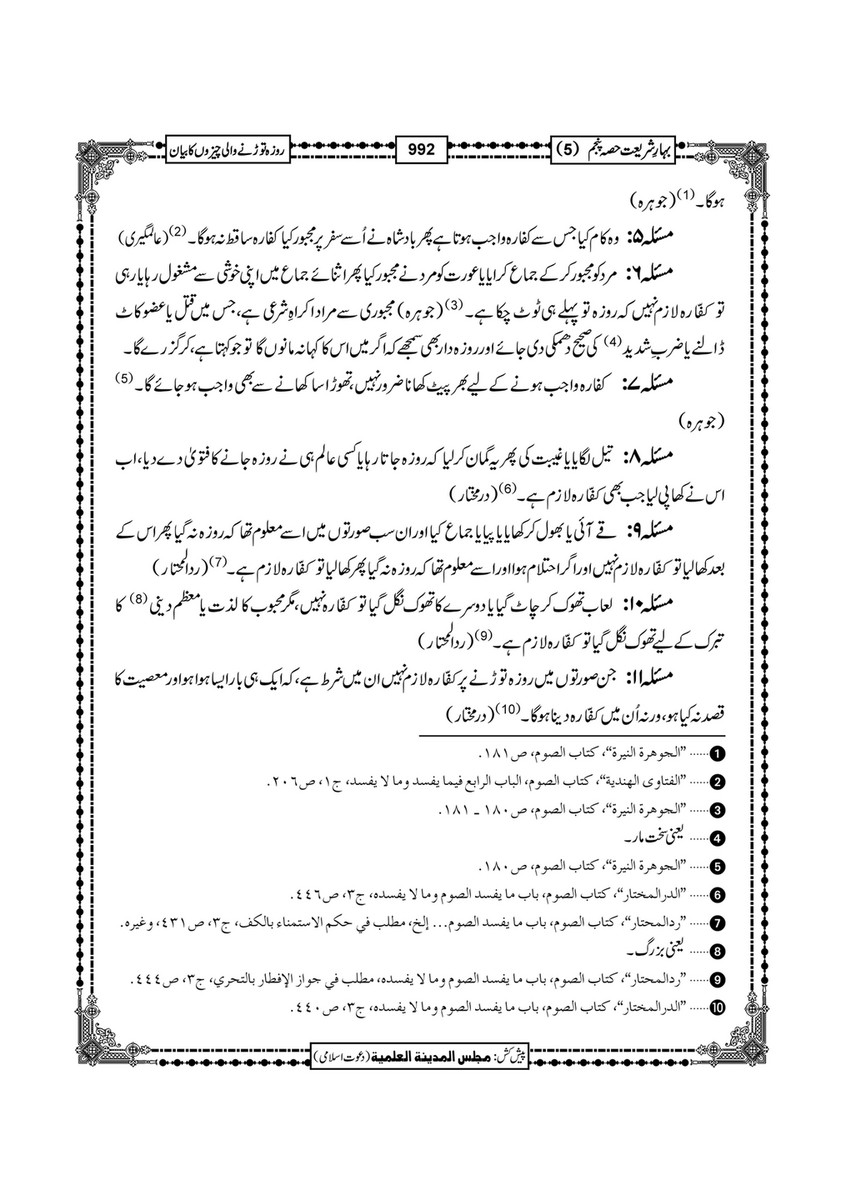 بہارِ شریعت حصہ پنجم (5)
992
روزہ توڑنے والی چیزوں کا بیان
ہوگا۔(1) (جوہرہ)
مسئلہ ۵: وہ کام کیا جس سے کفارہ واجب ہوتا ہے پھر بادشاہ نے اُسے سفر پر مجبور کیا کفارہ ساقط نہ ہوگا۔(2) (عالمگیری)
مسئلہ ۶: مرد کو مجبور کر کے جماع کرایا یا عورت کو مرد نے مجبور کیا پھر اثنائے جماع میں اپنی خوشی سے مشغول رہا یا رہی
تو کفّارہ لازم نہیں کہ روزہ تو پہلے ہی ٹوٹ چکا ہے۔(3) (جوہرہ) مجبوری سے مراد اکراہِ شرعی ہے، جس میں قتل یا عضو کاٹ
ڈالنے یا ضربِ شدید(4) کی صحیح دھمکی دی جائے اور روزہ دار بھی سمجھے کہ اگر میں اس کا کہا نہ مانوں گا تو جو کہتا ہے، کر گزرے گا۔
مسئلہ ۷: کفارہ واجب ہونے کے لیے بھر پیٹ کھانا ضرور نہیں، تھوڑا سا کھانے سے بھی واجب ہو جائے گا۔(5)
(جوہرہ)
مسئلہ ۸: تیل لگایا یا غیبت کی پھر یہ گمان کر لیا کہ روزہ جاتا رہا یا کسی عالم ہی نے روزہ جانے کا فتویٰ دے دیا، اب
اس نے کھا پی لیا جب بھی کفّارہ لازم ہے۔(6) (درمختار)
مسئلہ ۹: قے آئی یا بھول کر کھایا یا پیا یا جماع کیا اور ان سب صورتوں میں اسے معلوم تھا کہ روزہ نہ گیا پھر اس کے
بعد کھا لیا تو کفّارہ لازم نہیں اور اگر احتلام ہوا اور اسے معلوم تھا کہ روزہ نہ گیا پھر کھا لیا تو کفّارہ لازم ہے۔(7) (ردالمحتار)
مسئلہ ۱۰: لعاب تھوک کر چاٹ گیا یا دوسرے کا تھوک نگل گیا تو کفّارہ نہیں، مگر محبوب کا لذت یا معظم دینی(8) کا
تبرک کے لیے تھوک نگل گیا تو کفّارہ لازم ہے۔(9) (ردالمحتار)
مسئلہ ۱۱: جن صورتوں میں روزہ توڑنے پر کفّارہ لازم نہیں ان میں شرط ہے، کہ ایک ہی بار ایسا ہوا ہو اور معصیت کا
قصد نہ کیا ہو، ورنہ اُن میں کفّارہ دینا ہوگا۔(10) (درمختار)
1 ...... ”الجوهرة النيرة“، كتاب الصوم، ص١٨١.
2 ...... ”الفتاوى الهندية“، كتاب الصوم، الباب الرابع فيما يفسد وما لا يفسد، ج١، ص٢٠٦.
3 ...... ”الجوهرة النيرة“، كتاب الصوم، ص١٨٠ ـ ١٨١.
4 ...... یعنی سخت مار۔
5 ...... ”الجوهرة النيرة“، كتاب الصوم، ص١٨٠.
6 ...... ”الدرالمختار“، كتاب الصوم، باب ما يفسد الصوم وما لا يفسده، ج٣، ص٤٤٦.
7 ...... ”ردالمحتار“، كتاب الصوم، باب ما يفسد الصوم... إلخ، مطلب في حكم الاستمناء بالكف، ج٣، ص٤٣١، وغيره.
8 ...... یعنی بزرگ۔
9 ...... ”ردالمحتار“، كتاب الصوم، باب ما يفسد الصوم وما لا يفسده، مطلب في جواز الإفطار بالتحري، ج٣، ص٤٤٤.
10 ...... ”الدرالمختار“، كتاب الصوم، باب ما يفسد الصوم وما لا يفسده، ج٣، ص٤٤٠.
پیش کش: مجلس المدينة العلمية (دعوت اسلامی)